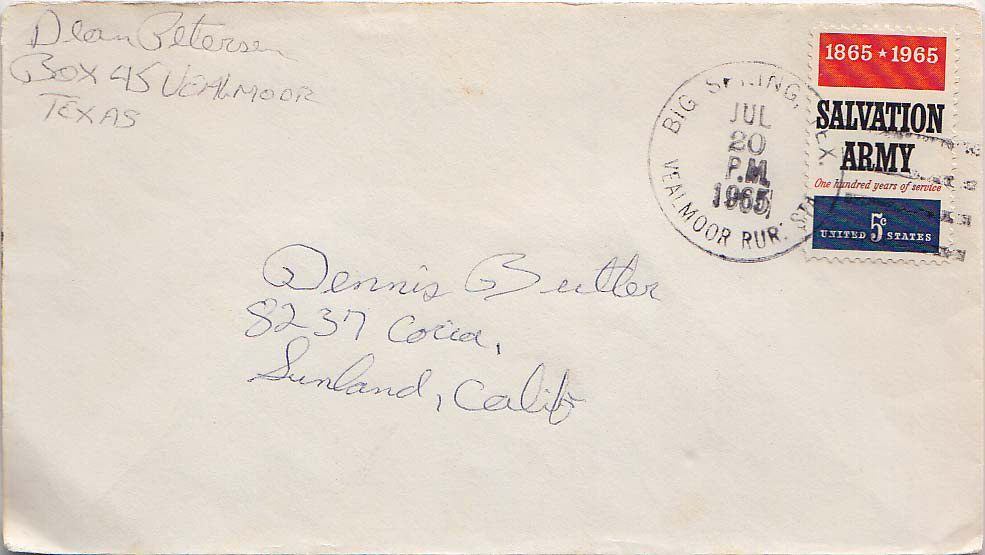 Dean Petersen
Box 45 VEALMOOR
TEXAS
BIG SPRING, TEX.
JUL
20
P.M.
1965
VEALMOOR RUR. STA.
1865 ★ 1965
SALVATION
ARMY
One hundred years of service
5c
UNITED STATES
Dennis Butler
8237
Sunland, Calif